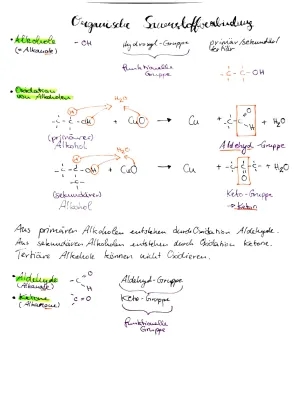 Organische Sauerstoffverbindung
• Alkohole -OH Hydroxyl-Gruppe primär/sekundär/
(= Alkanole) tertiär
funktionelle
Gruppe
-C-C-OH
• Oxidation
von Alkoholen H₂O
-C-C-OH + CuO → Cu + -C-C O H + H₂O
(primärer)
Alkohol Aldehyd-Gruppe
H₂O
-C-C-C- OH + CuO → Cu + -C-C-C- O + H₂O
(sekundären) Keto-Gruppe
Alkohol → Keton
Aus primären Alkoholen entstehen durch Oxidation Aldehyde.
Aus sekundären Alkoholen entstehen durch Oxidation Ketone.
Tertiäre Alkohole können nicht Oxidieren.
• Aldehyde -C O H Aldehyd-Gruppe
(Alkanale)
• Ketone C=O Keto-Gruppe
(Alkanone)
funktionelle
Gruppe